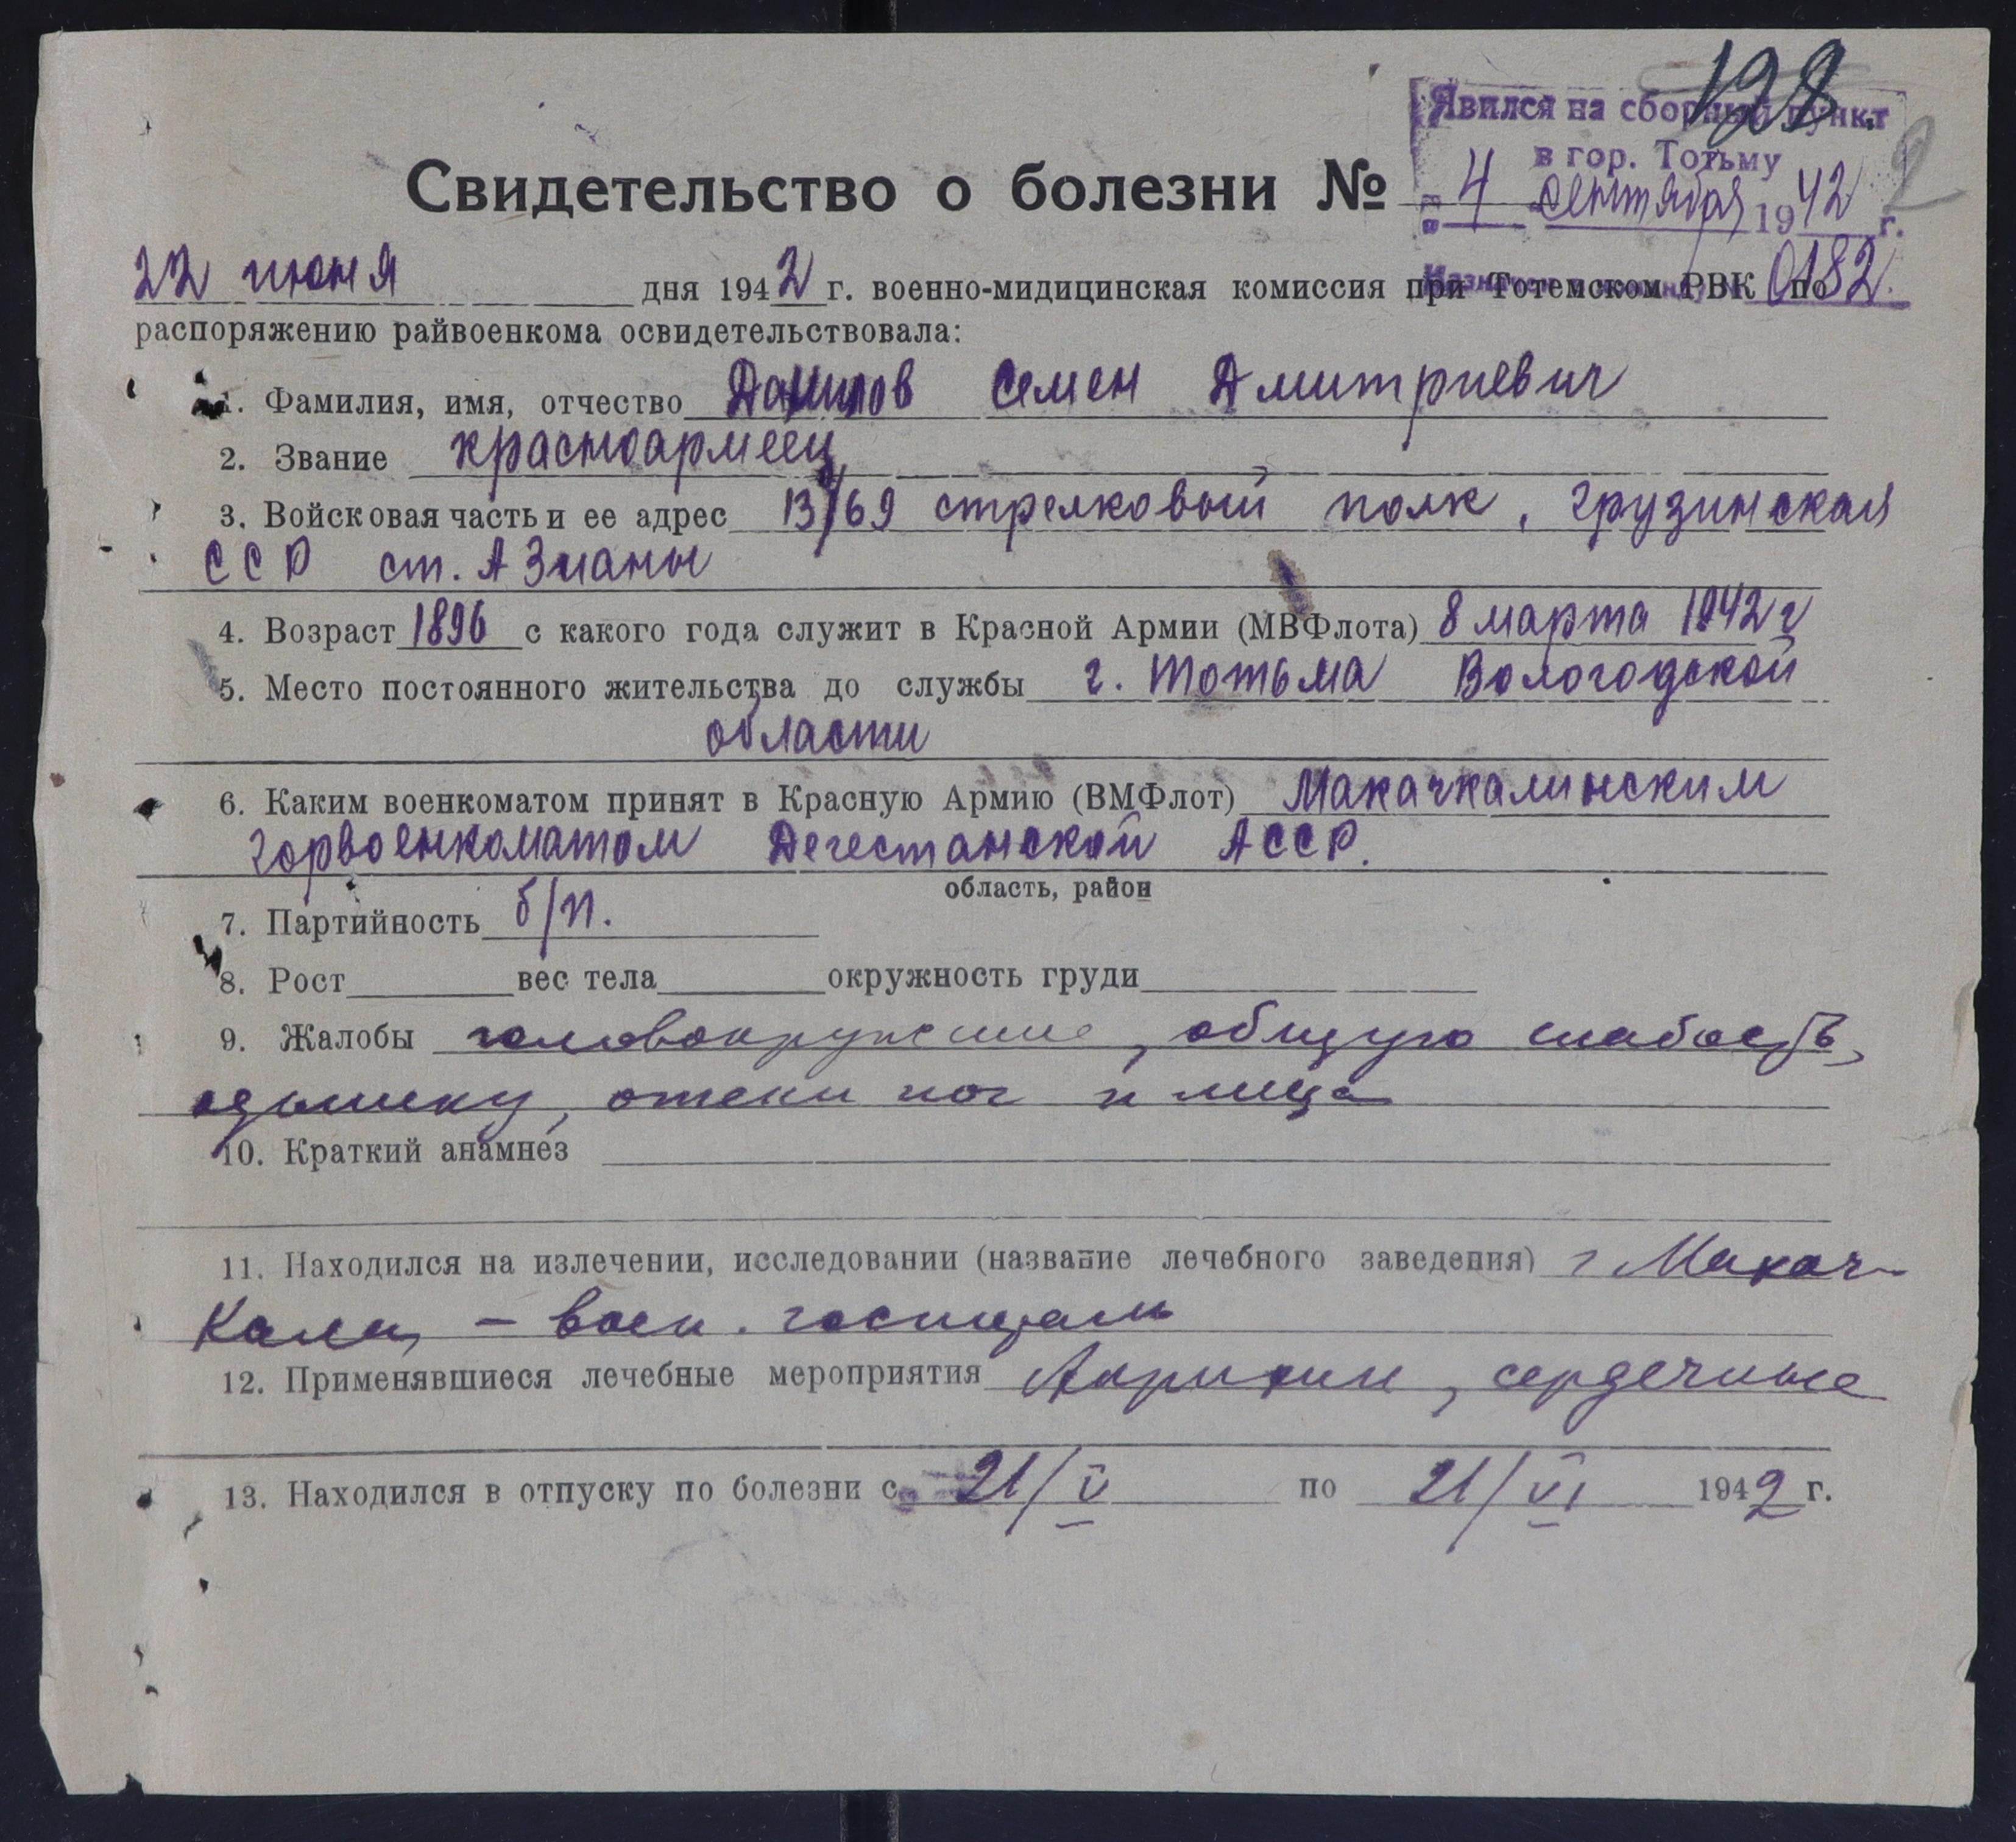 198.
Явился на сборный пункт
в гор. Тотьму
2
Свидетельство о болезни №
4 сентября 1942 г.
0182
22 июня дня 1942 г. военно-мидицинская комиссия при Тотемском РВК по
распоряжению райвоенкома освидетельствовала:
1. Фамилия, имя, отчество Данилов Семен Дмитриевич
2. Звание красноармеец
3. Войсковая часть и ее адрес 13/69 стрелковый полк, грузинская
ССР ст. АЗианы
4. Возраст 1896 с какого года служит в Красной Армии (МВФлота) 8 марта 1942 г
5. Место постоянного жительства до службы г. Тотьма Вологодской
области
6. Каким военкоматом принят в Красную Армию (ВМФлот) Макачкалинским
горвоенкоматом Дегестанской АССР.
область, район
7. Партийность б/п.
8. Рост вес тела окружность груди
9. Жалобы головокружение, общую слабость,
одышку, отеки ног и лица
10. Краткий анамнез
11. Находился на излечении, исследовании (название лечебного заведения) г Макач-
Кала, – воен. госпиталь
12. Применявшиеся лечебные мероприятия Акрихин, сердечные
13. Находился в отпуску по болезни с 21/V по 21/VI 1942 г.